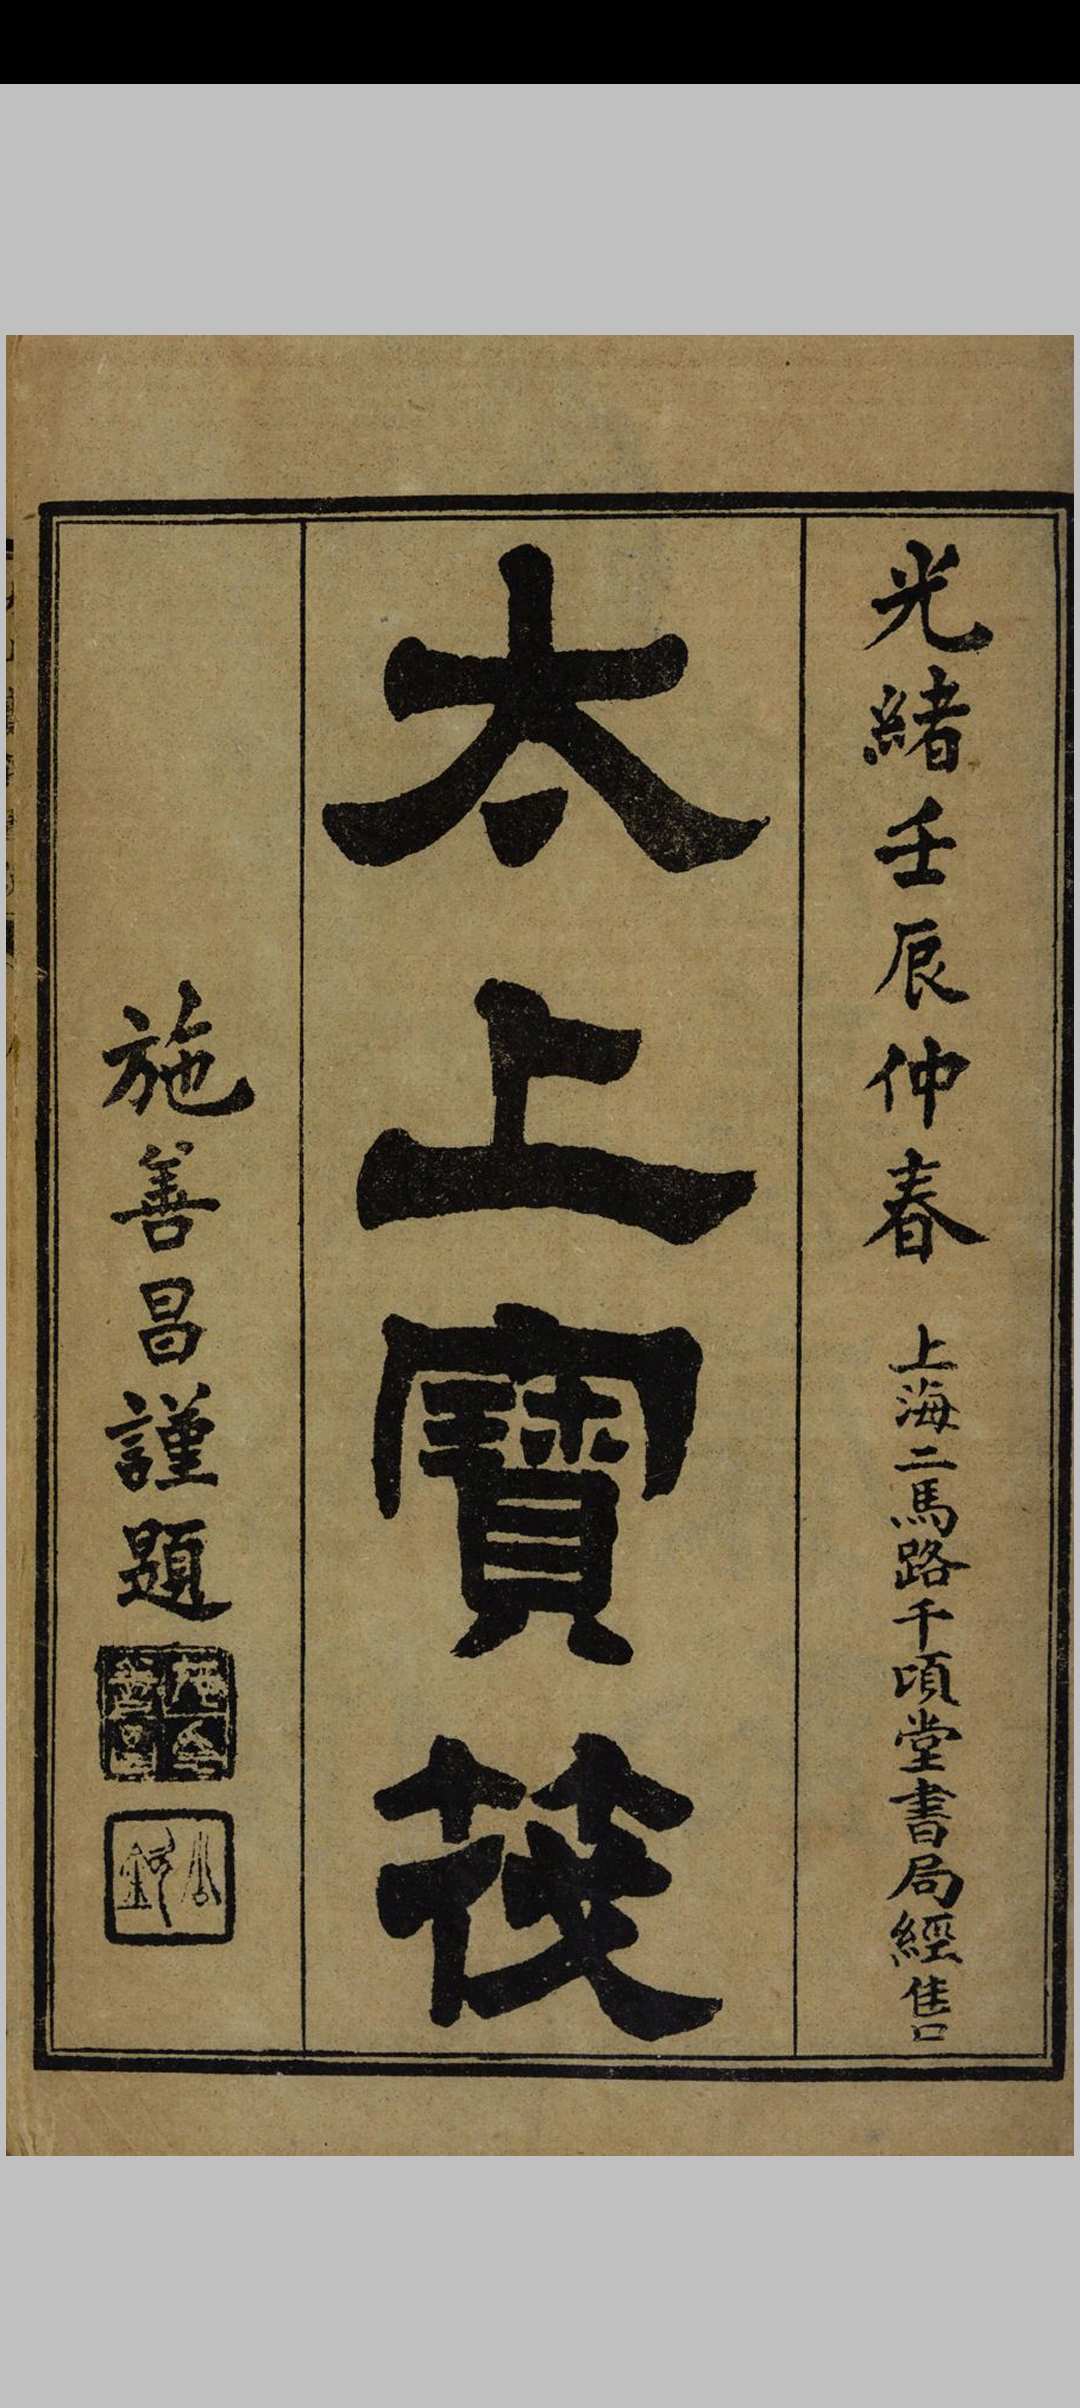 光緒壬辰仲春 上海二馬路千頃堂書局經售
太上寶筏
施善昌謹題